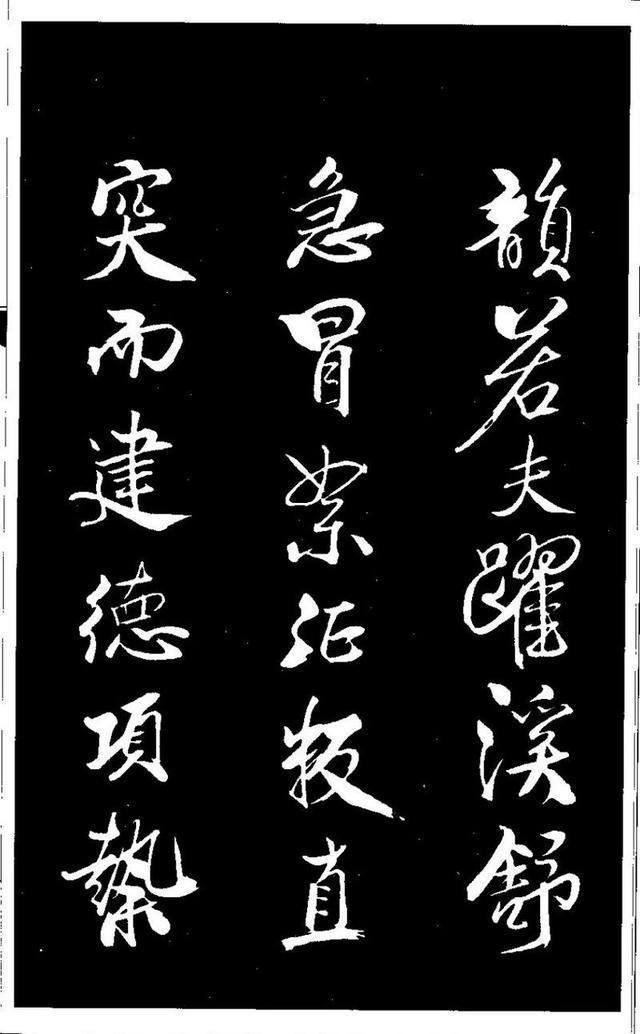 韻若夫躍溪舒
急冒絮征叛直
突而建德項縶